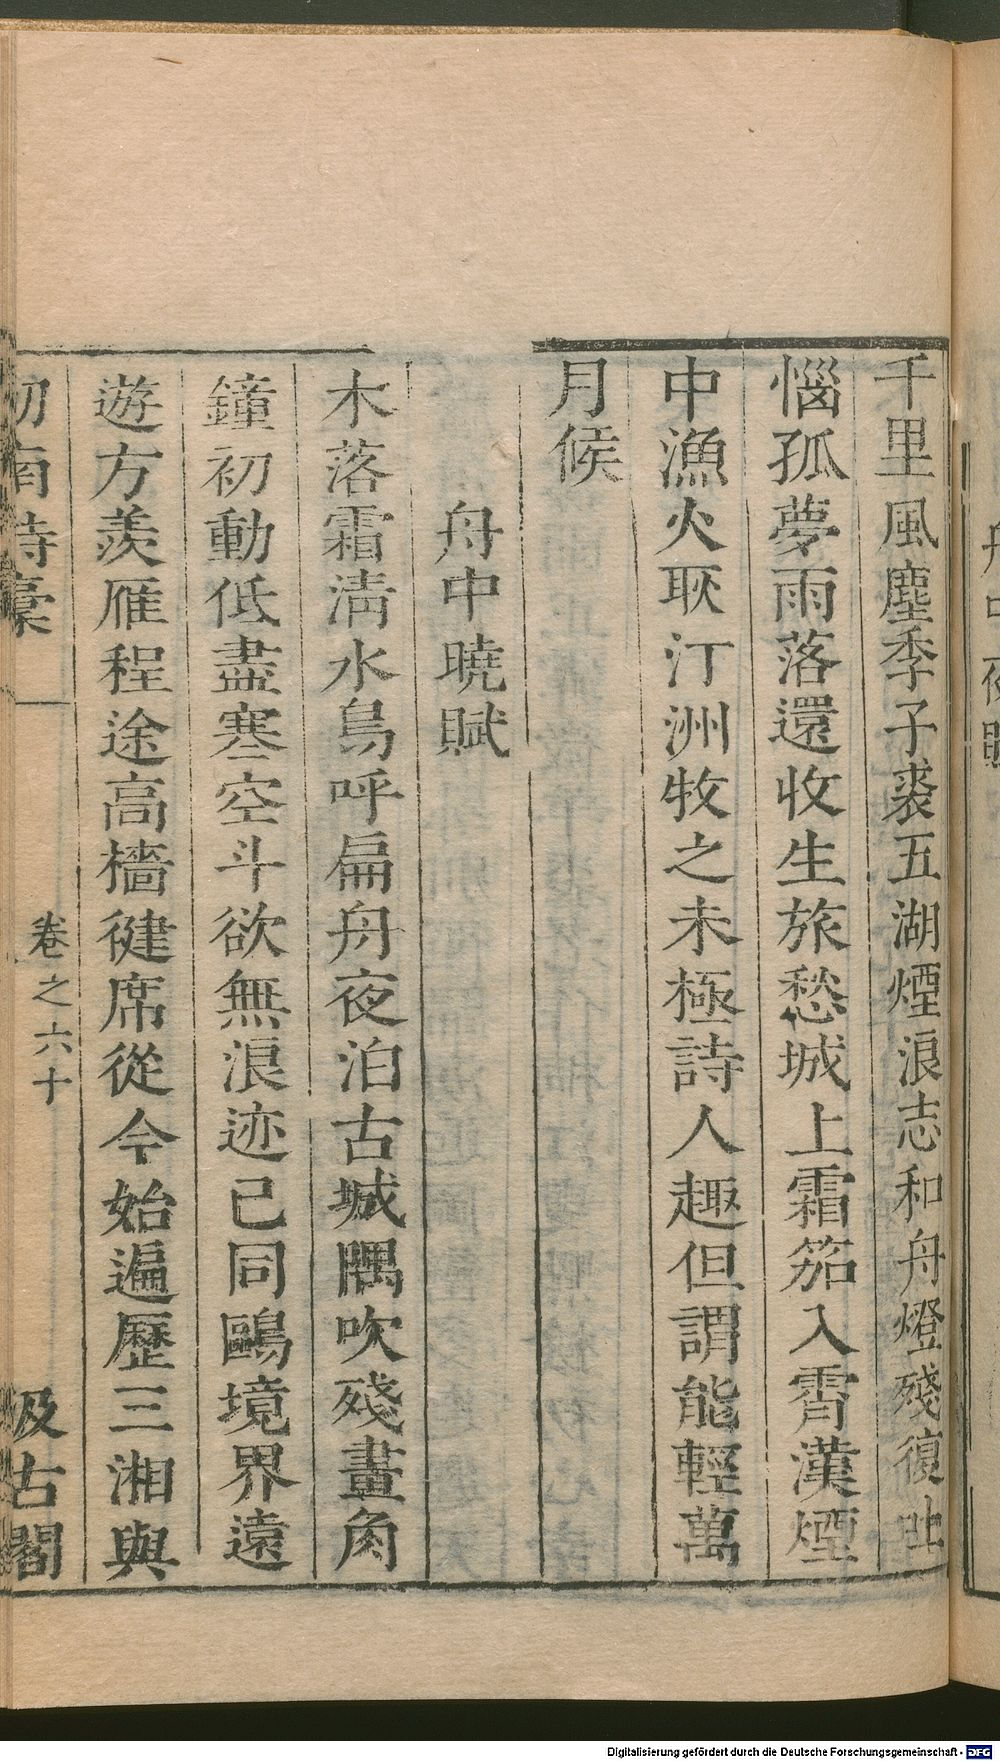 千里風塵季子裘五湖煙浪志和舟燈殘復吐
惱孤夢雨落還收生旅愁城上霜笳入霄漢煙
中漁火耿汀洲牧之未極詩人趣但謂能輕萬
月候
舟中曉賦
木落霜淸水鳥呼扁舟夜泊古城隅吹殘畫角
鐘初動低盡寒空斗欲無浪迹已同鷗境界遠
遊方羨雁程途高檣健席從今始遍歷三湘與
劒南詩稾
卷之六十
汲古閣
Digitalisierung gefördert durch die Deutsche Forschungsgemeinschaft - DFG